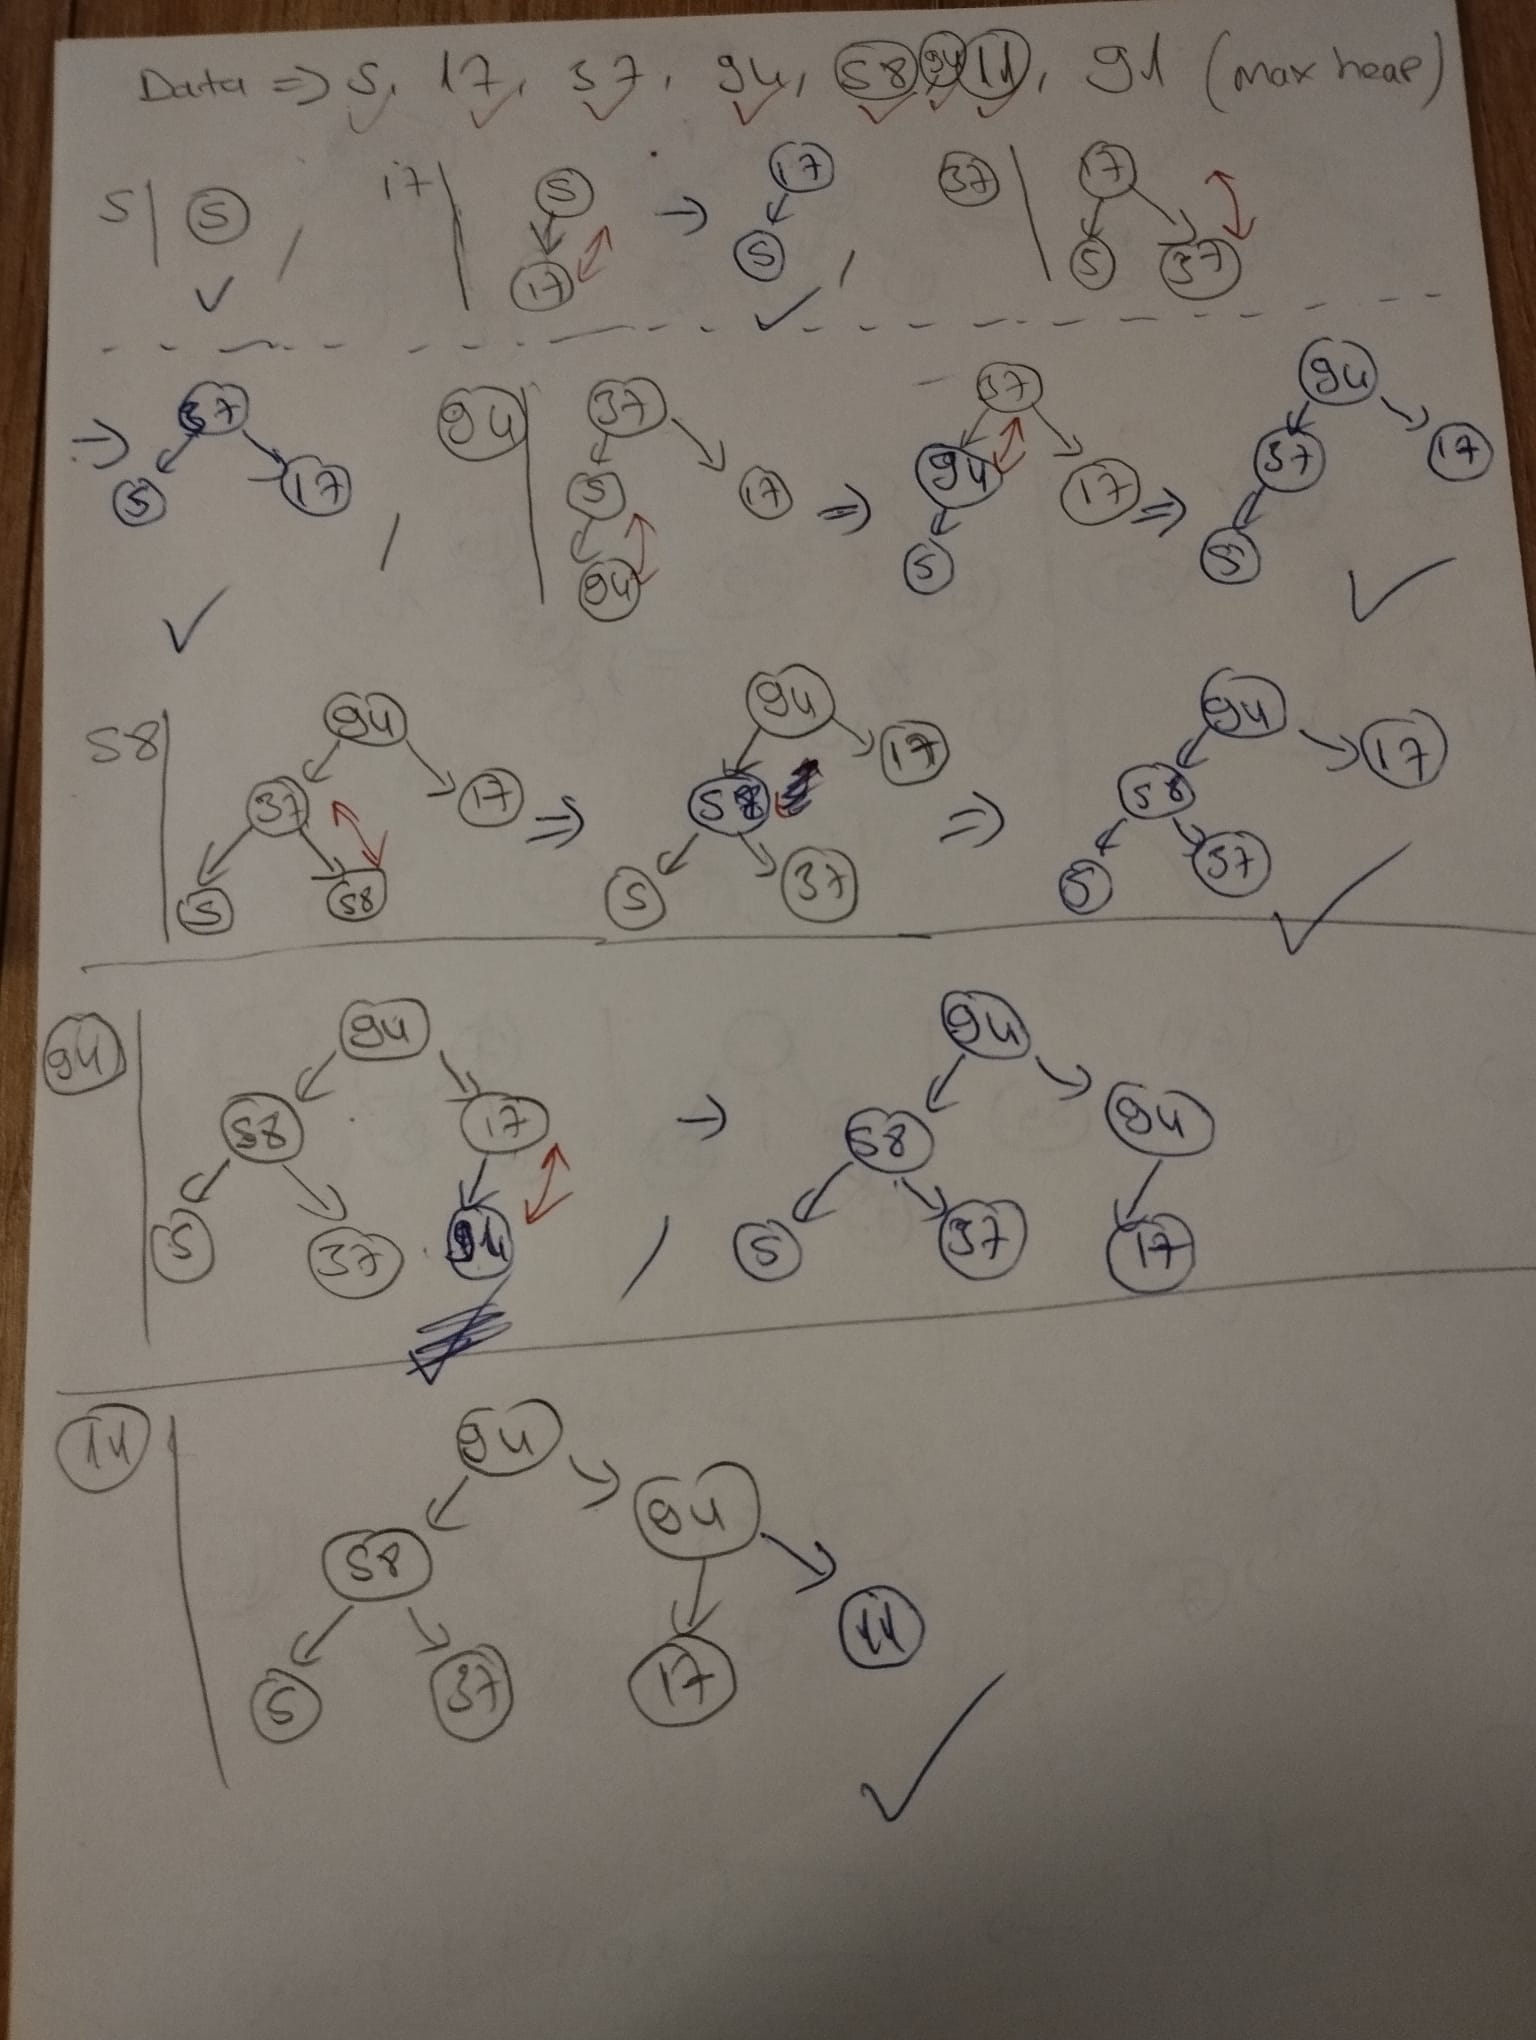 Data => 5, 17, 37, 94, 58 94 11, 91 (max heap)
5 | 5 , 17 | 5 17 → 17 5 , 37 | 17 5 37
=> 37 5 17 , 94 | 37 5 17 94 => 37 94 17 5 => 94 37 17 5
58 | 94 37 17 5 58 => 94 58 17 5 37 => 94 58 17 5 37
94 | 94 58 17 5 37 94 , → 94 58 94 5 37 17
11 | 94 58 94 5 37 17 11